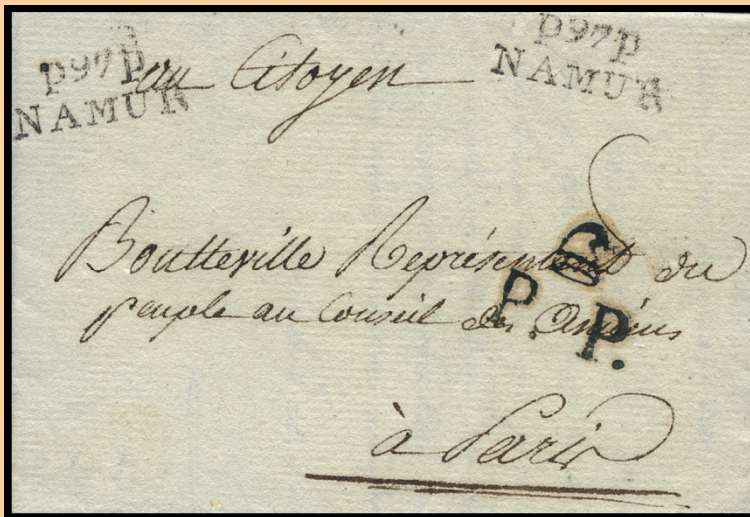 P97P
NAMUR
P97P
NAMUR
au Citoyen
Boutteville Représentant du
peuple au Conseil des Anciens
P. P.
à Paris